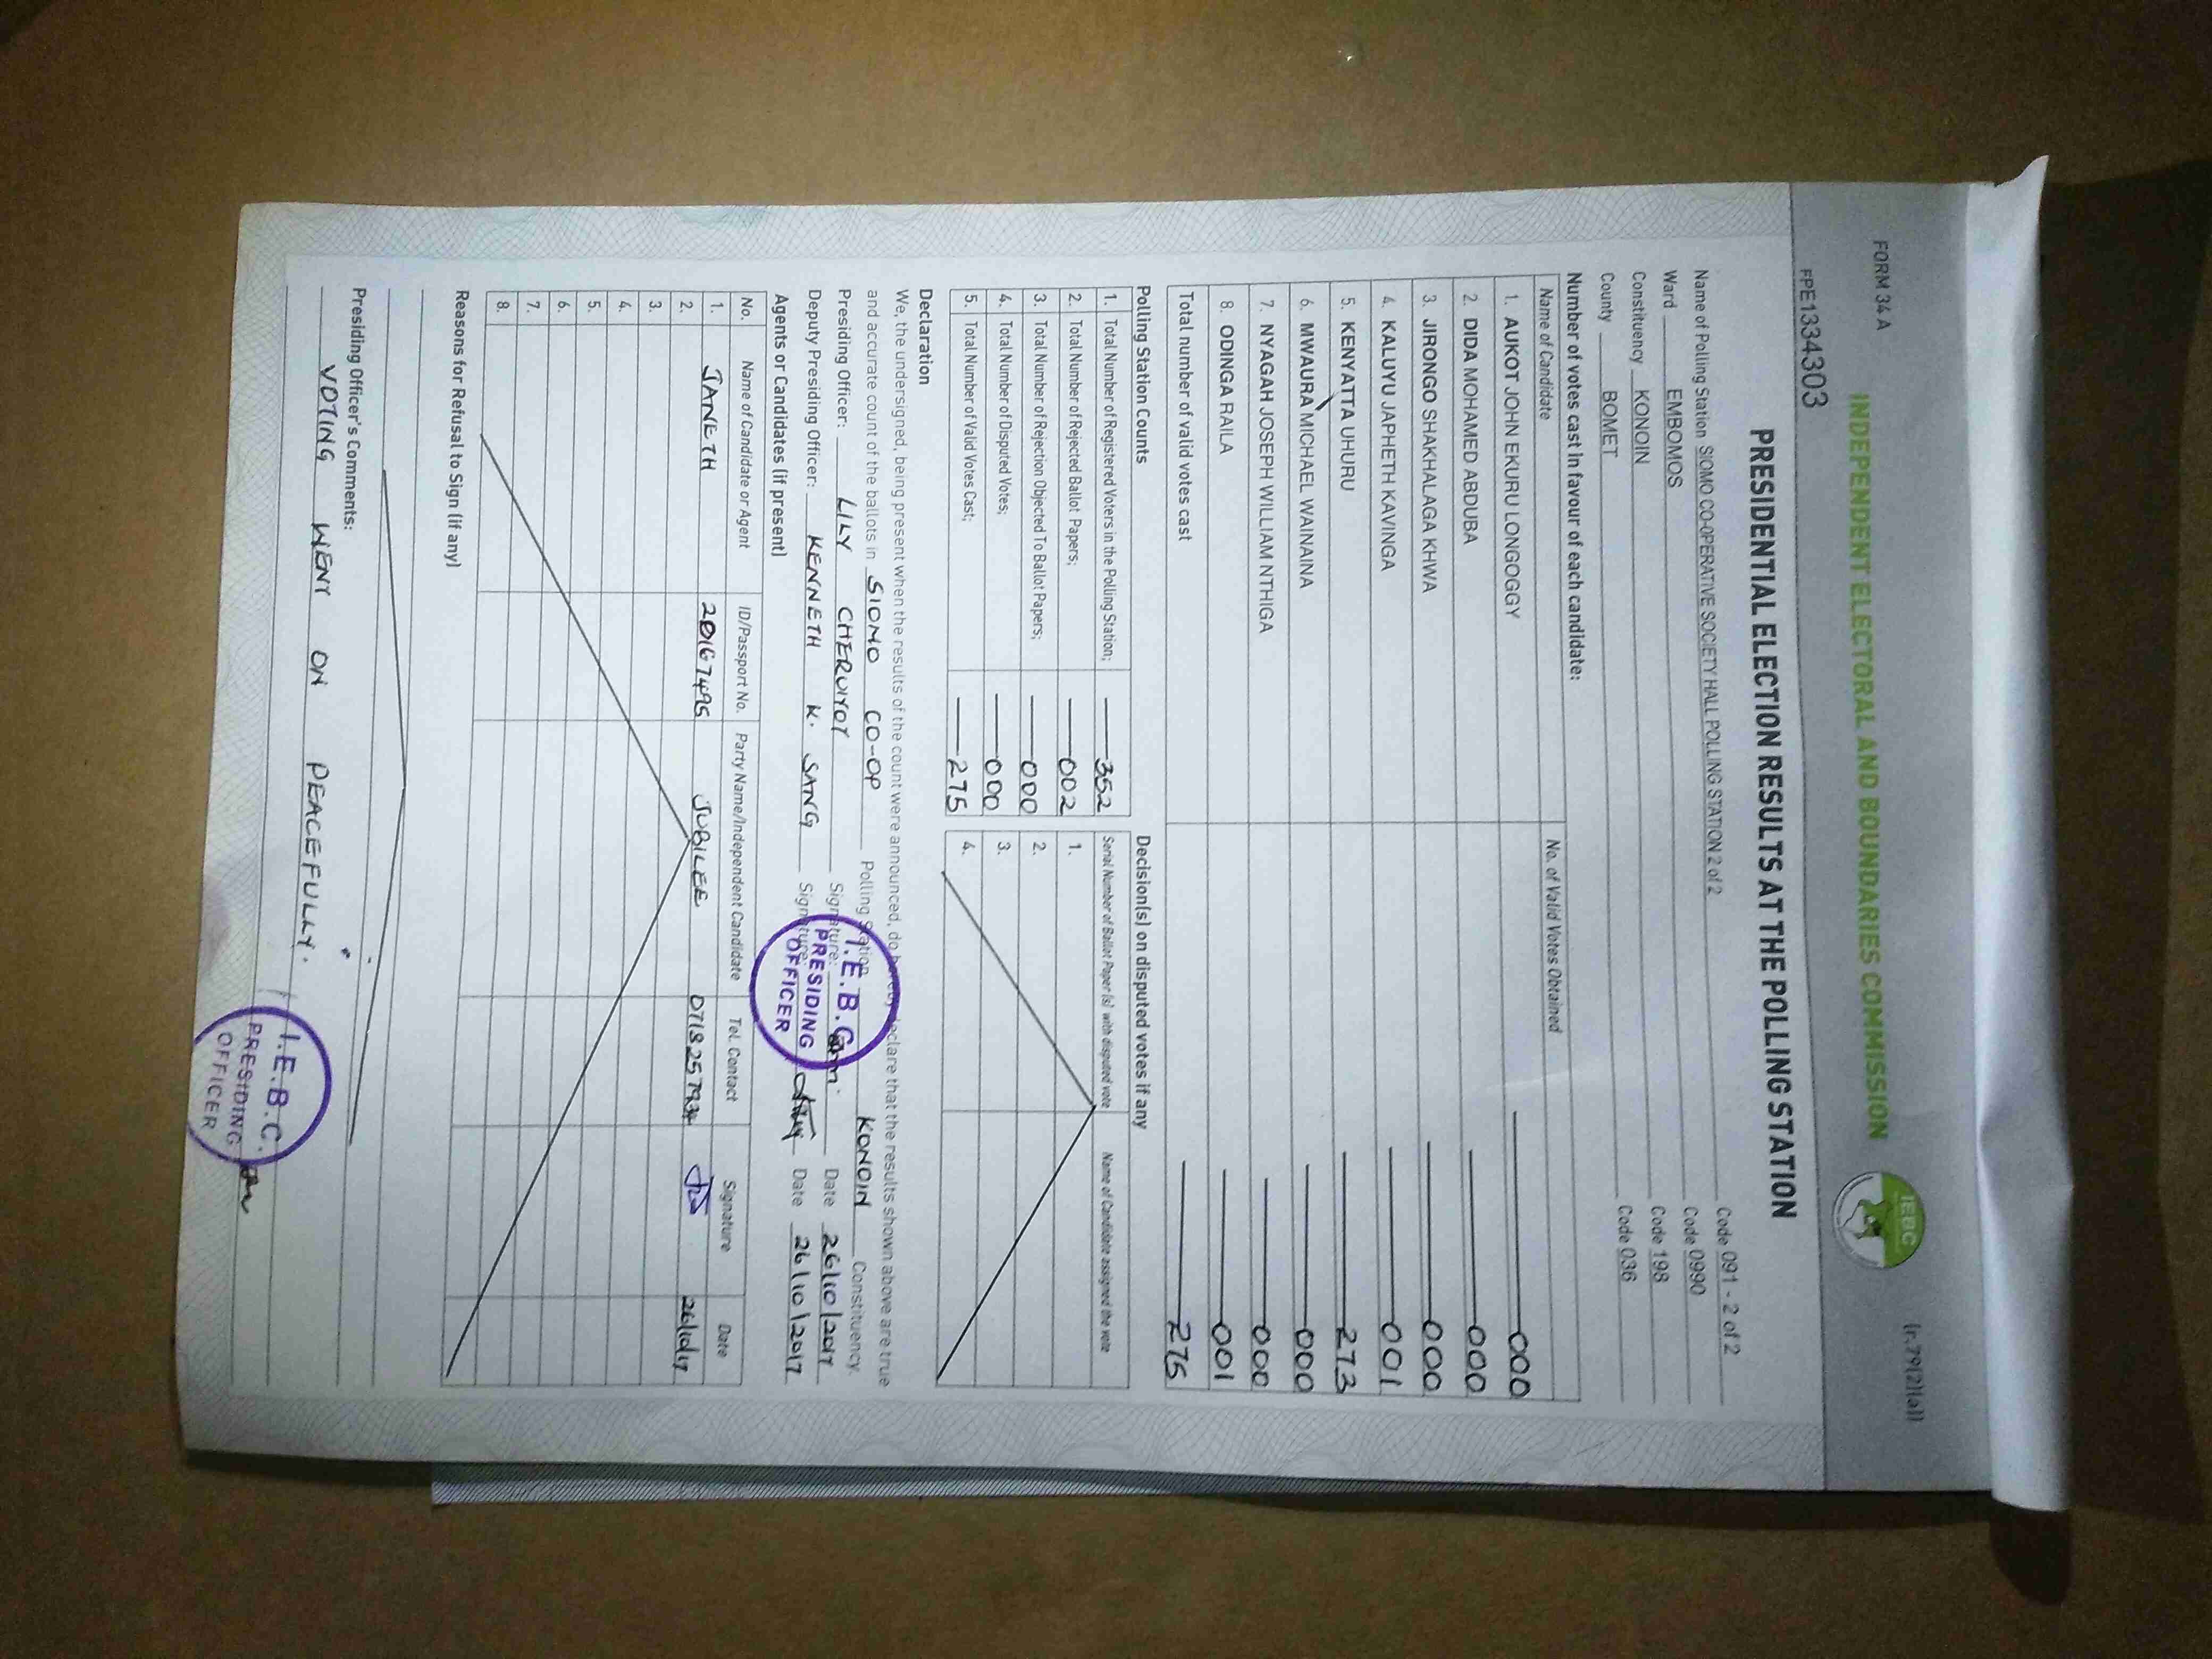 FORM 34 A
(r.79(2)(a))
INDEPENDENT ELECTORAL AND BOUNDARIES COMMISSION
IEBC
FPE1334303
PRESIDENTIAL ELECTION RESULTS AT THE POLLING STATION
Name of Polling Station SIOMO CO-OPERATIVE SOCIETY HALL POLLING STATION 2 of 2 Code 091 - 2 of 2
Ward EMBOMOS Code 0990
Constituency KONOIN Code 198
County BOMET Code 036
Number of votes cast in favour of each candidate:
Name of Candidate No. of Valid Votes Obtained
1. AUKOT JOHN EKURU LONGOGGY 000
2. DIDA MOHAMED ABDUBA 000
3. JIRONGO SHAKHALAGA KHWA 000
4. KALUYU JAPHETH KAVINGA 001
5. KENYATTA UHURU 273
6. MWAURA MICHAEL WAINAINA 000
7. NYAGAH JOSEPH WILLIAM NTHIGA 000
8. ODINGA RAILA 001
Total number of valid votes cast 275
Polling Station Counts
1. Total Number of Registered Voters in the Polling Station; 352
2. Total Number of Rejected Ballot Papers; 002
3. Total Number of Rejection Objected To Ballot Papers; 000
4. Total Number of Disputed Votes; 000
5. Total Number of Valid Votes Cast; 275
Decision(s) on disputed votes if any
Serial Number of Ballot Paper (s) with disputed vote Name of Candidate assigned the vote
1.
2.
3.
4.
Declaration
We, the undersigned, being present when the results of the count were announced, do hereby declare that the results shown above are true
and accurate count of the ballots in SIOMO CO-OP Polling Station KONOIN Constituency.
Presiding Officer: LILY CHERUIYOT Signature: Date 26/10/2017
Deputy Presiding Officer: KENNETH K. SANG Signature: Date 26/10/2017
I.E.B.C.
PRESIDING
OFFICER
Agents or Candidates (if present)
No. Name of Candidate or Agent ID/Passport No. Party Name/Independent Candidate Tel. Contact Signature Date
1. JANETH 20167495 JUBILEE 26/10/17
2.
3.
4.
5.
6.
7.
8.
Reasons for Refusal to Sign (if any)
Presiding Officer's Comments:
VOTING WENT ON PEACEFULLY.
I.E.B.C.
PRESIDING
OFFICER